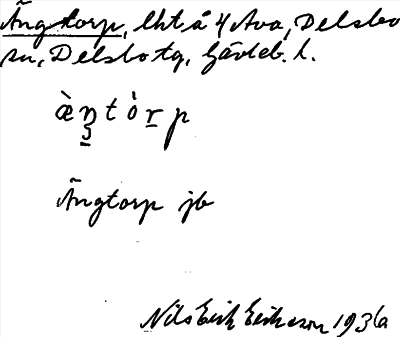 Ängtorp, lht å 4 Ava, Delsbo
sn, Delsbo tg, Gävleb. l.
æ̀ŋtò̱rp
Ängtorp jb
Nils Erik Eriksson 1936